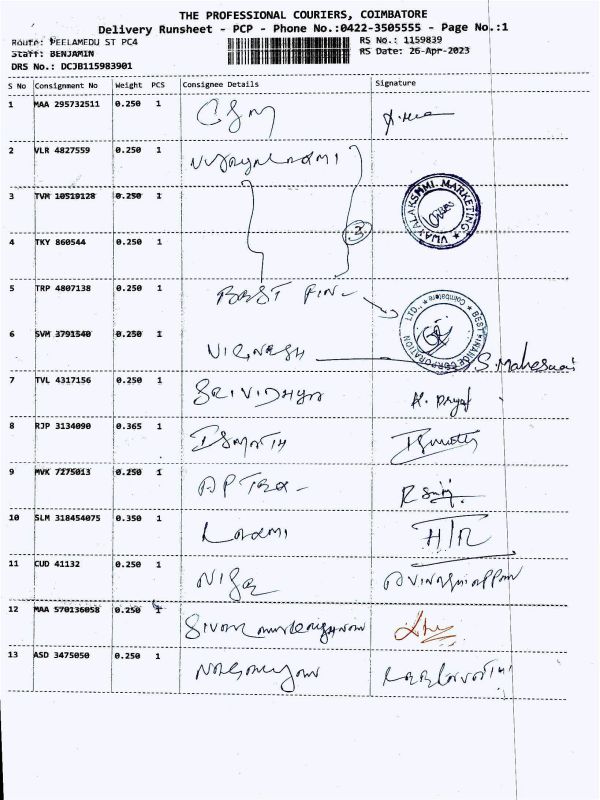 THE PROFESSIONAL COURIERS, COIMBATORE
Delivery Runsheet - PCP - Phone No.:0422-3505555 - Page No.:1
Route: PEELAMEDU ST PC4
RS No.: 1159839
Staff: BENJAMIN
RS Date: 26-Apr-2023
DRS No.: DCJB115983901
S No Consignment No Weight PCS Consignee Details Signature
1 MAA 295732511 0.250 1
2 VLR 4827559 0.250 1
3 TVM 10519128 0.250 1
VIJAYALAKSHMI MARKETING
4 TKY 860544 0.250 1
2
5 TRP 4807138 0.250 1 BEST FIN
BEST FINANCE CORPORATION LTD., Coimbatore
6 SVM 3791540 0.250 1 VIGNESH S. Maheswari
7 TVL 4317156 0.250 1 SRIVIDHYA
8 RJP 3134090 0.365 1
9 MVK 7275013 0.250 1
10 SLM 318454075 0.350 1 Laxmi
11 CUD 41132 0.250 1
12 MAA 570136058 0.250 1
13 ASD 3475050 0.250 1